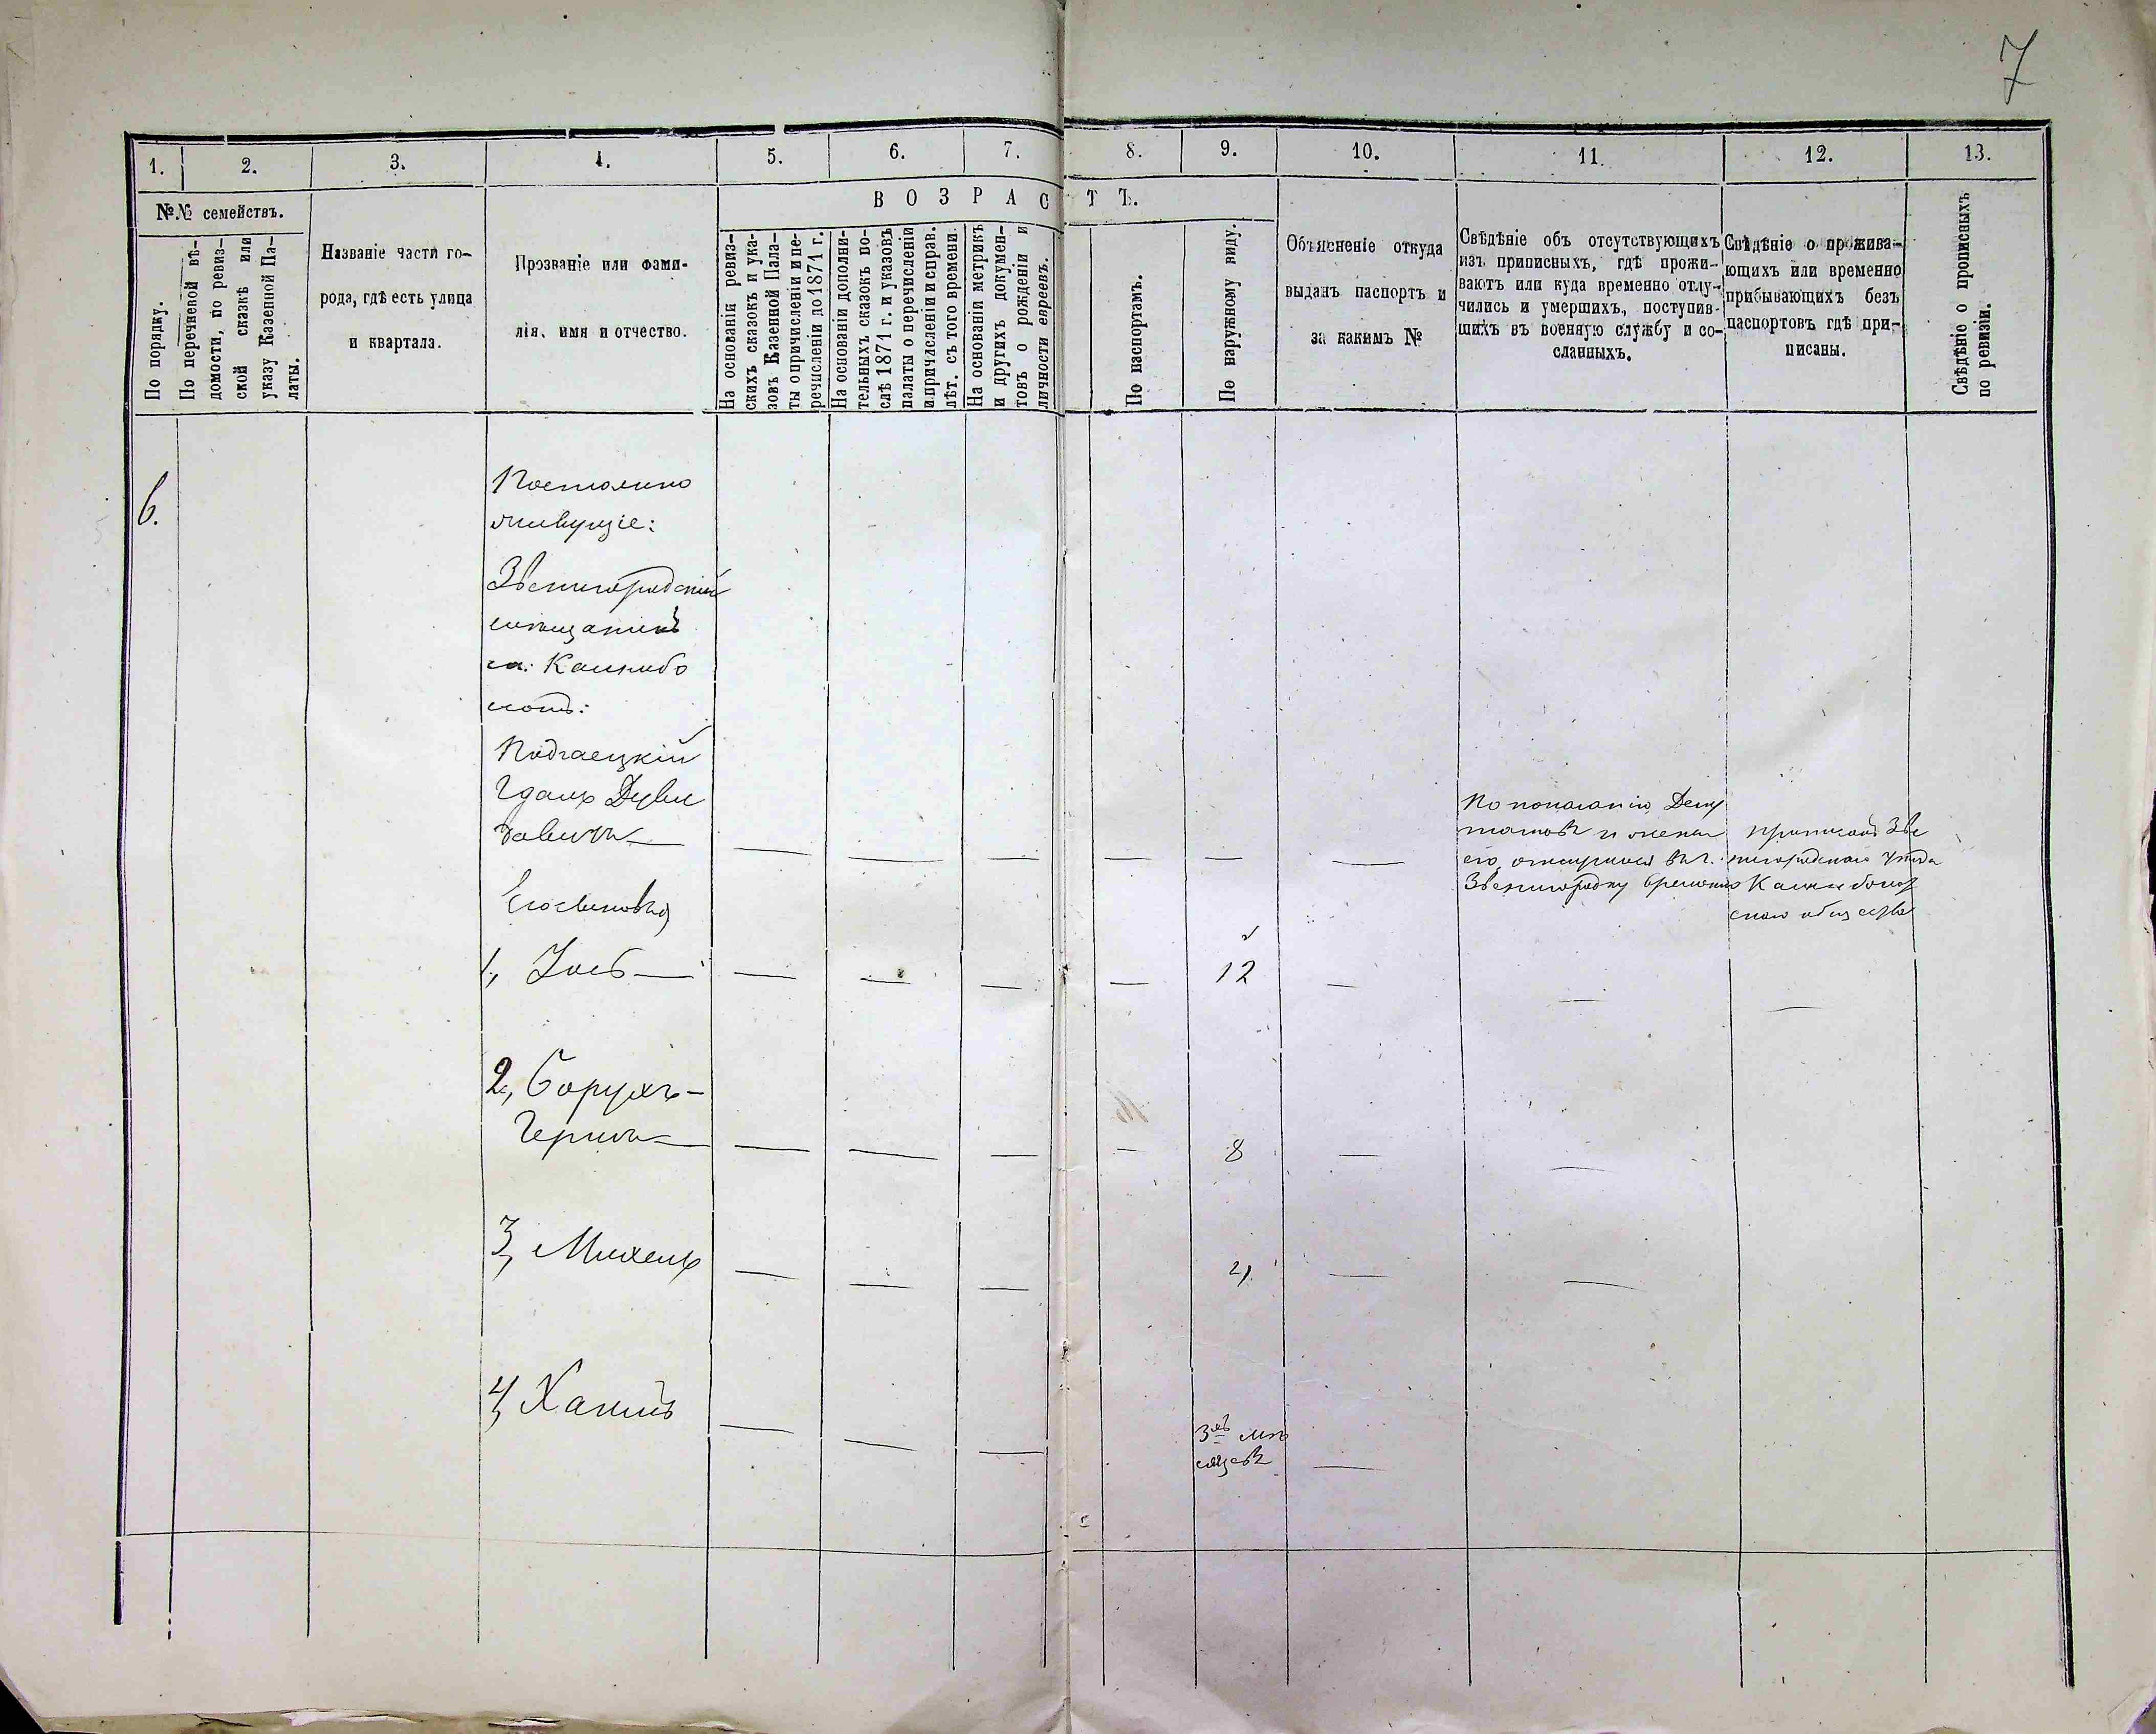 7
1.
2.
3.
4.
5.
6.
7.
8.
9.
10.
11.
12.
13.
№№ семействъ.
ВОЗРАСТЪ.
По порядку.
По перечневой вѣ-
домости, по ревиз-
ской сказкѣ или
указу Казенной Па-
латы.
Названіе части го-
рода, гдѣ есть улица
и квартала.
Прозваніе или фами-
лія, имя и отчество.
На основаніи ревиз-
скихъ сказокъ и ука-
зовъ Казенной Пала-
ты о причисленіи и пе-
речисленіи до 1871 г.
На основаніи дополни-
тельныхъ сказокъ по-
слѣ 1871 г. и указовъ
палаты о перечисленіи
и причисленіи и справ.
лѣт. съ того времени.
На основаніи метрикъ
и другихъ докумен-
товъ о рожденіи и
личности евреевъ.
По паспортамъ.
По наружному виду.
Объясненіе откуда
выданъ паспортъ и
за какимъ №
Свѣдѣніе объ отсутствующихъ
изъ приписныхъ, гдѣ прожи-
ваютъ или куда временно отлу-
чились и умершихъ, поступив-
шихъ въ военную службу и со-
сланныхъ.
Свѣдѣніе о прожива-
ющихъ или временно
прибывающихъ безъ
паспортовъ гдѣ при-
писаны.
Свѣдѣніе о прописныхъ
по ревизіи.
6.
Постоянно
живущіе:
Звенигородскій
мѣщанинъ
м: Калнибо
лотъ:
Подгаецкій
Гдаль Дуви
довичъ —
По показанію Депу
татовъ и жены
его, отлучился въ г.
Звенигородку временно
приписанъ Зве
нигородскаго уѣзда
Калниболот
скаго общества
Его сыновья
1, —
12
2, Борухъ-
Гершъ —
8
3, Михель
4, Хаимъ
3хъ мѣ
сяцевъ